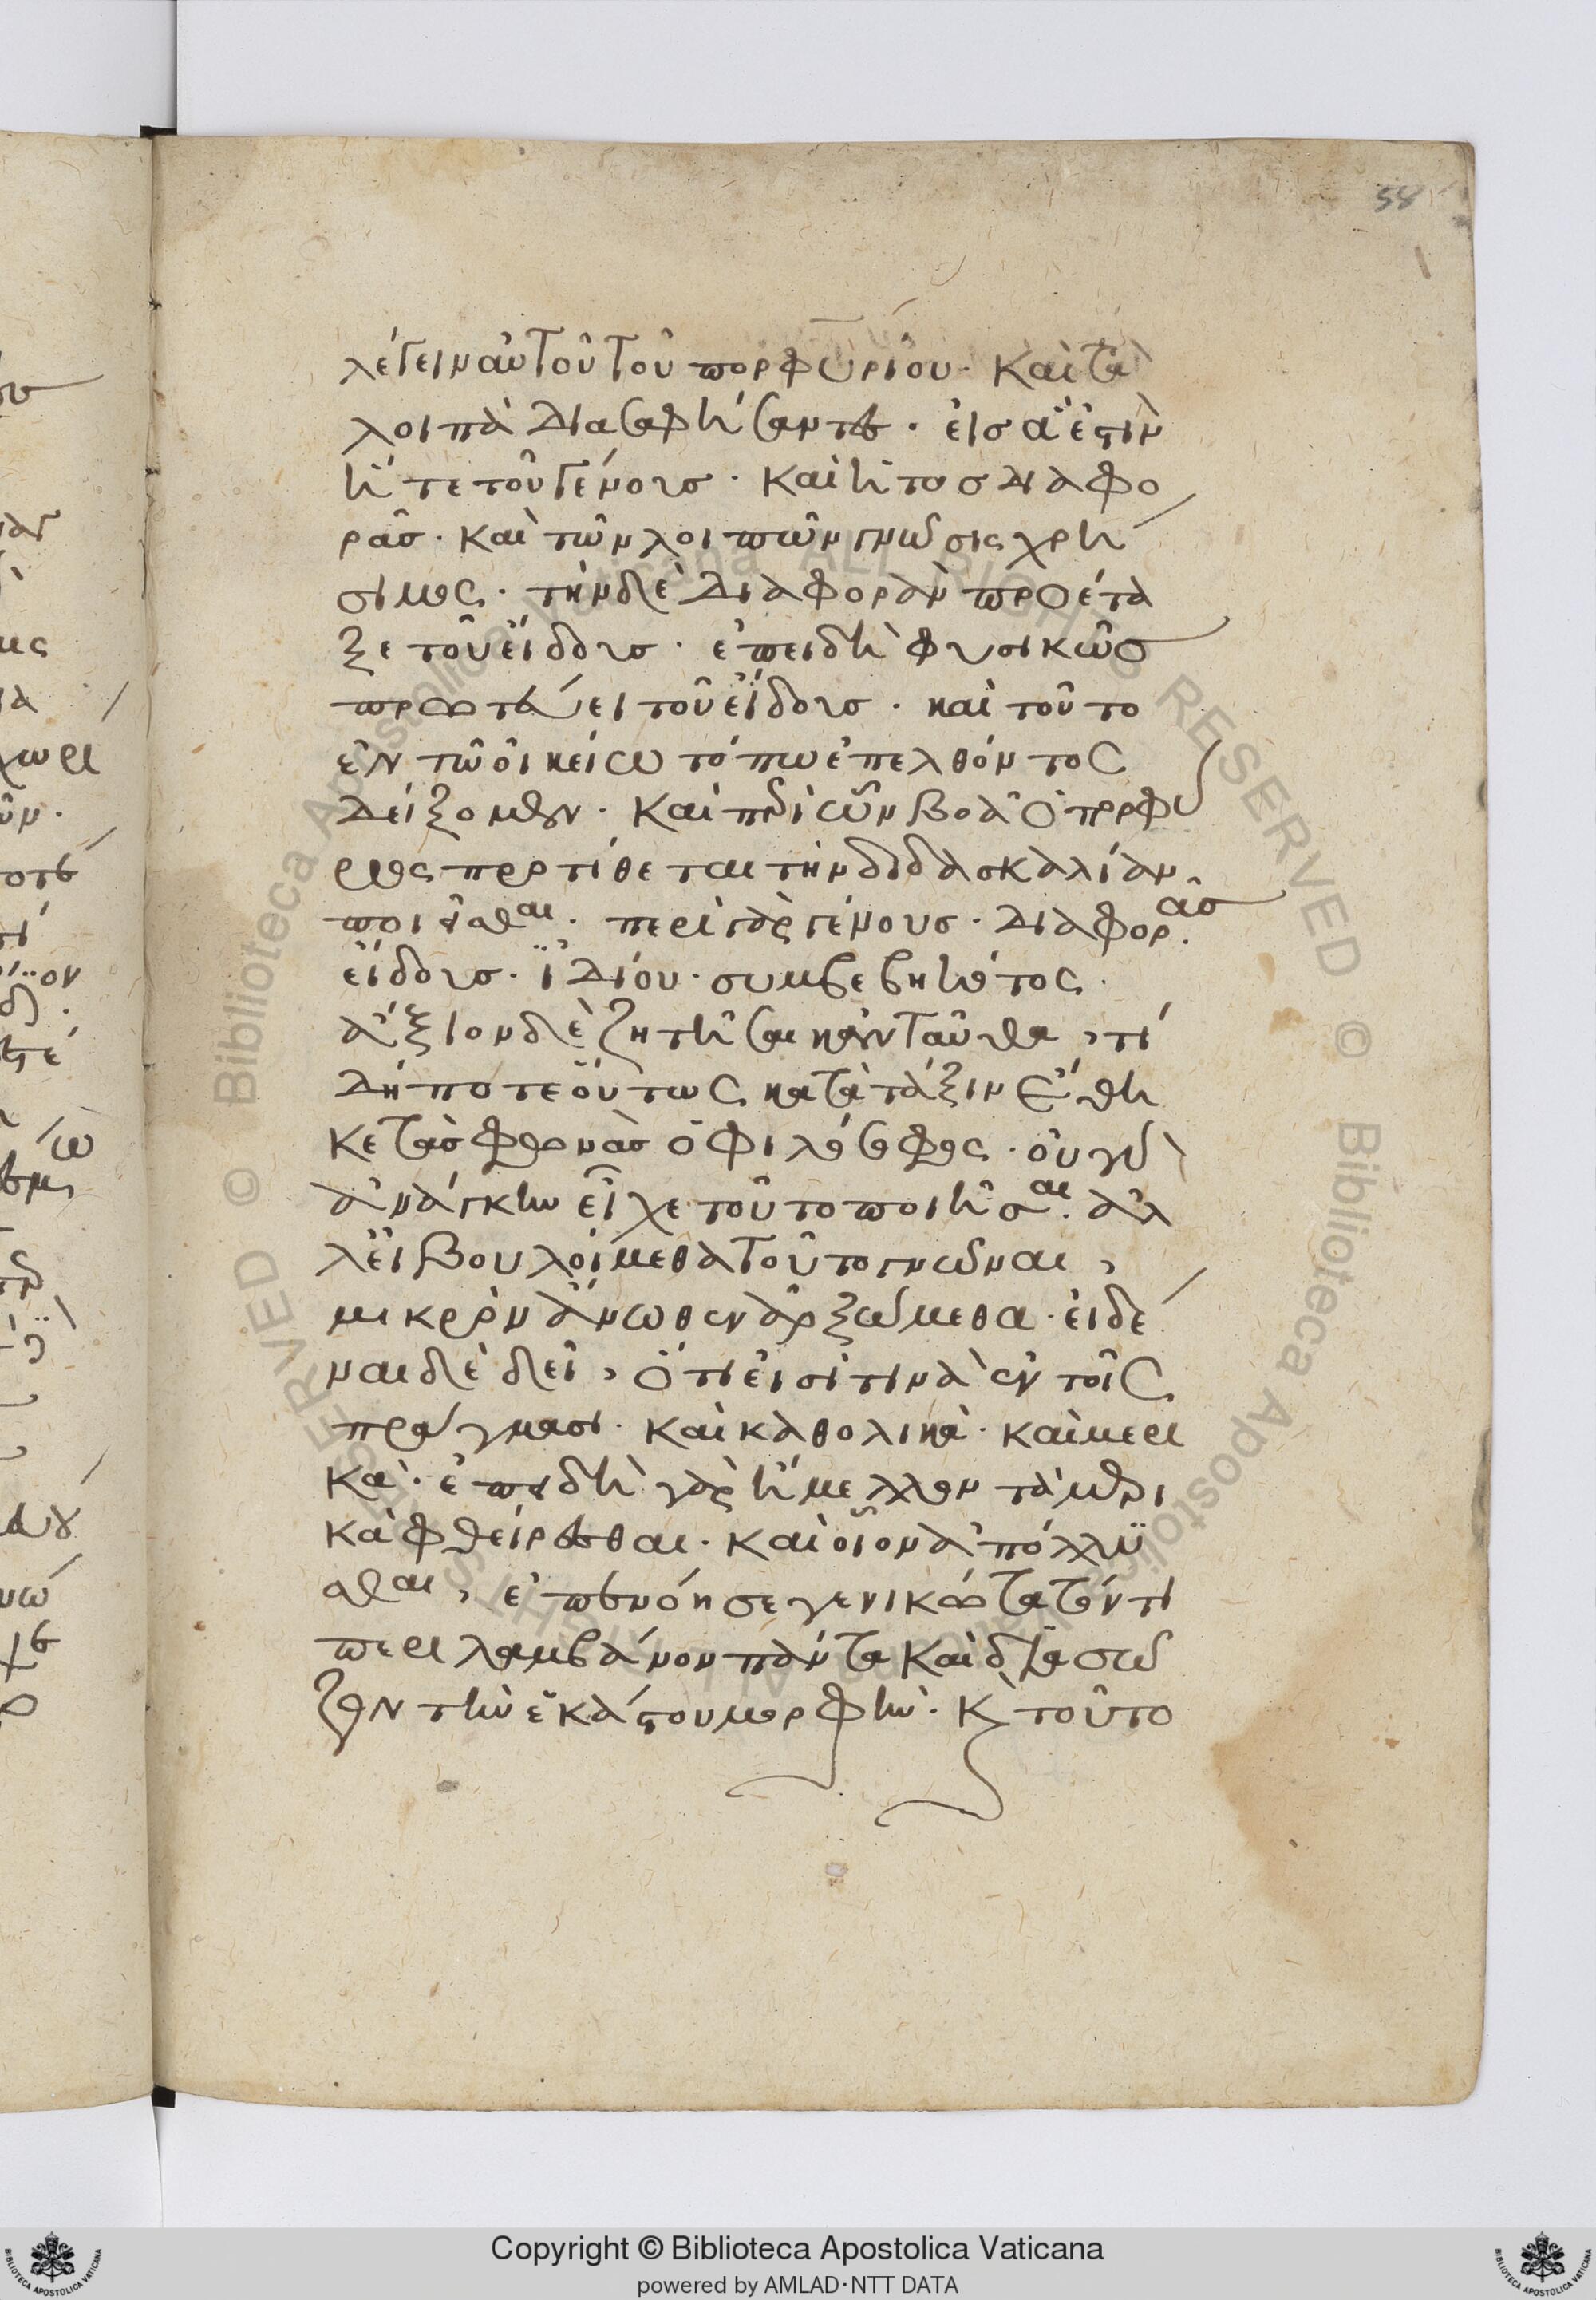 58
λέγειν αὐτοῦ τοῦ πορφυρίου· καὶ τὰ
λοιπὰ διασαφήσαντος· εἰς ἅ ἐστιν
ἥ τε τοῦ γένους· καὶ ἡ τῆς διαφο
ρᾶς· καὶ τῶν λοιπῶν γνῶσις χρή
σιμος· τὴν δὲ διαφορὰν προέτα
ξε τοῦ εἴδους· ἐπειδὴ φυσικῶς
πρωτεύει τοῦ εἴδους· καὶ τοῦτο
ἐν τῷ οἰκείῳ τόπῳ ἐπελθόντος
δείξομεν· καὶ περὶ ὧν βούλεται ὁ πορφύ
ριος προτίθεται τὴν διδασκαλίαν
ποιεῖσθαι· περὶ γὰρ γένους· διαφορᾶς·
εἴδους· ἰδίου· συμβεβηκότος·
ἄξιον δὲ ζητῆσαι κἀνταῦθα, τί
δήποτε οὕτως κατὰ τάξιν ἔθη
κε τὰς φωνὰς ὁ φιλόσοφος· οὐ γὰρ
ἀνάγκην εἶχε τοῦτο ποιῆσαι· ἀλ
λ' εἰ βουλοίμεθα τοῦτο γνῶναι,
μικρὸν ἄνωθεν ἀρξώμεθα· εἰδέ
ναι δὲ δεῖ, ὅτι εἰσί τινα ἐν τοῖς
πράγμασι· καὶ καθολικὰ· καὶ μερι
κὰ· ἐπειδὴ γὰρ ἤμελλον τὰ μερι
κὰ φθείρεσθαι· καὶ οἷον ἀπόλλυ
σθαι, ἐπενόησε γενικώτατόν τι
περιλαμβάνον πάντα καὶ διασῶ
ζον τὴν ἑκάστου μορφήν· κ τοῦτο
Copyright © Biblioteca Apostolica Vaticana
powered by AMLAD·NTT DATA